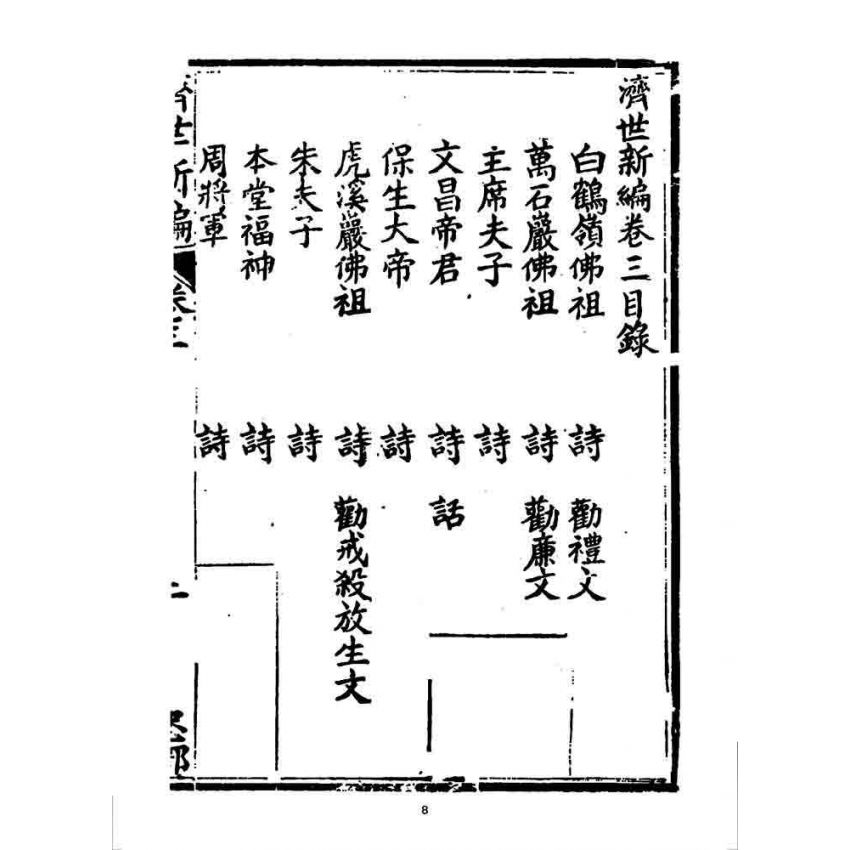 濟世新編卷三目錄
白鶴嶺佛祖 詩 勸禮文
萬石巖佛祖 詩 勸廉文
主席夫子 詩
文昌帝君 詩 話
保生大帝 詩
虎溪巖佛祖 詩 勸戒殺放生文
朱夫子 詩
本堂福神 詩
周將軍 詩
濟世新編 卷三
8